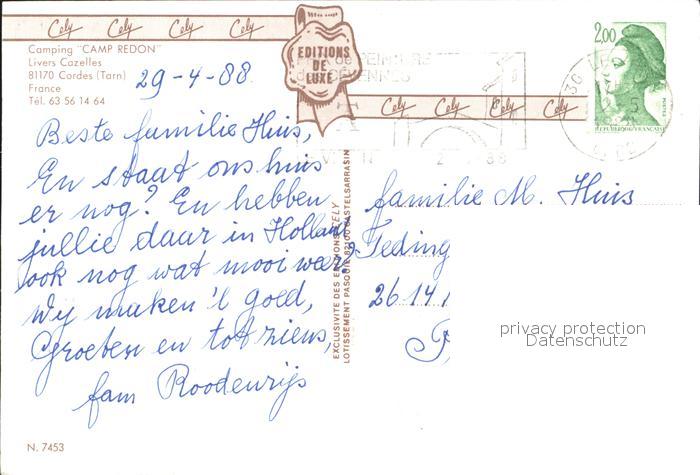 Cely Cely Cely Cely
Camping "CAMP REDON"
Livers Cazelles
81170 Cordes (Tarn)
France
Tél. 63 56 14 64
29-4-88
EDITIONS
DE
LUXE
Cely Cely Cely Cely
2,00
REPUBLIQUE FRANÇAISE
Beste familie Huis,
En staat ons huis
er nog? En hebben
jullie daar in Holland
ook nog wat mooi weer?
Wij maken 't goed,
Groeten en tot ziens,
fam Roodenrijs
EXCLUSIVITE DES EDITIONS CELY
LOTISSEMENT PASQUIE 82100 CASTELSARRASIN
familie M. Huis
Teding
2614
privacy protection
Datenschutz
N. 7453